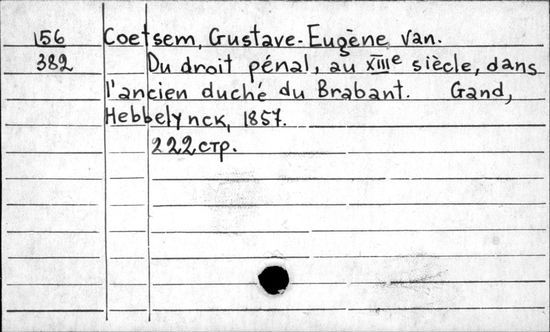 156 Coetsem, Gustave-Eugène van.
382 Du droit pénal, au XIIIe siècle, dans
l'ancien duché du Brabant. Gand,
Hebbelynck, 1857.
222 стр.